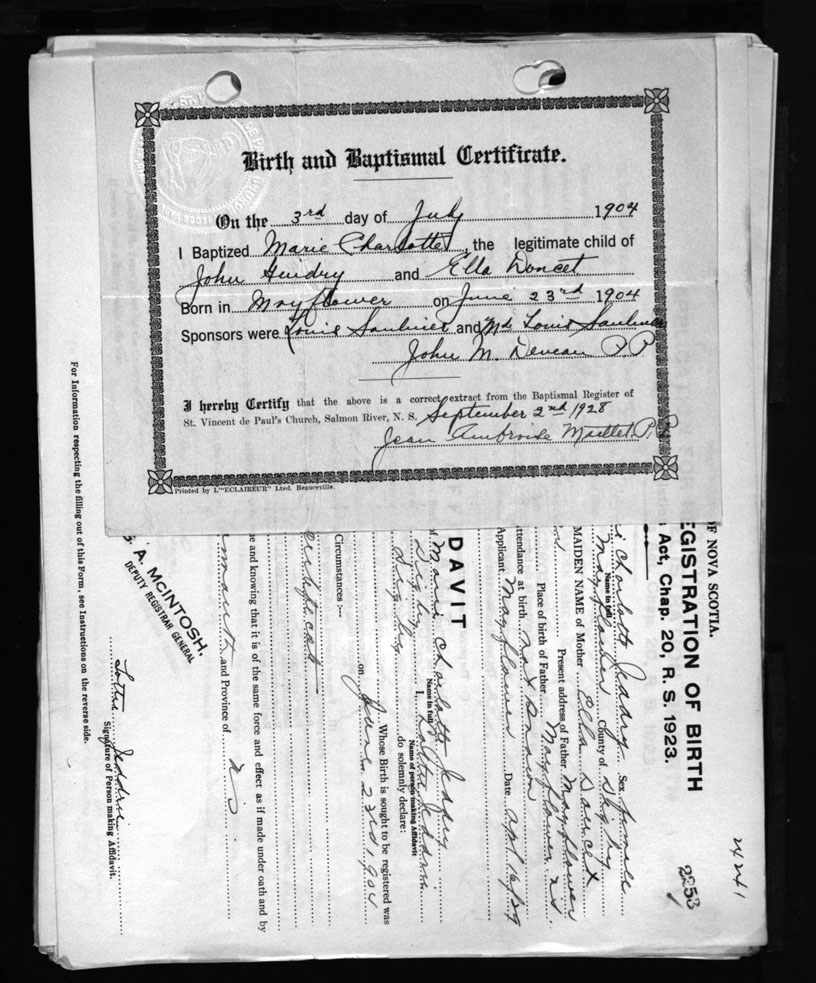 Birth and Baptismal Certificate.
On the 3rd day of July 1904
I Baptized Marie Charlotte, the legitimate child of
John Guidry and Ella Doncet
Born in Mayflower on June 23rd 1904
Sponsors were Louis Saulnier and Md Louis Saulnier
John M. Deveau P.P.
I hereby Certify that the above is a correct extract from the Baptismal Register of
St. Vincent de Paul's Church, Salmon River, N. S. September 2nd 1928
Jean Ambroise Maillet P.P.
Printed by L'"ECLAIREUR" Lted. Beauceville.
24241
2253
OF NOVA SCOTIA.
EGISTRATION OF BIRTH
Act, Chap. 20, R. S. 1923.
Charlotte Jeddry Sex female
Name in full
Mayflower County of Digby
MAIDEN NAME of Mother Ella Doucet
Present address of Father Mayflower
Place of birth of Father Mayflower
ttendance at birth
Applicant Mayflower Date
DAVIT
Marie Charlotte Jeddry
Name in full
Digby I,
Name of person making Affidavit
Digby do solemnly declare:
Whose Birth is sought to be registered was
on June 23rd 1904
Circumstances :—
e and knowing that it is of the same force and effect as if made under oath and by
rmouth and Province of N S
A. McINTOSH,
DEPUTY REGISTRAR GENERAL
Lottie Jeddrie
Signature of Person making Affidavit.
For Information respecting the filling out of this Form, see Instructions on the reverse side.